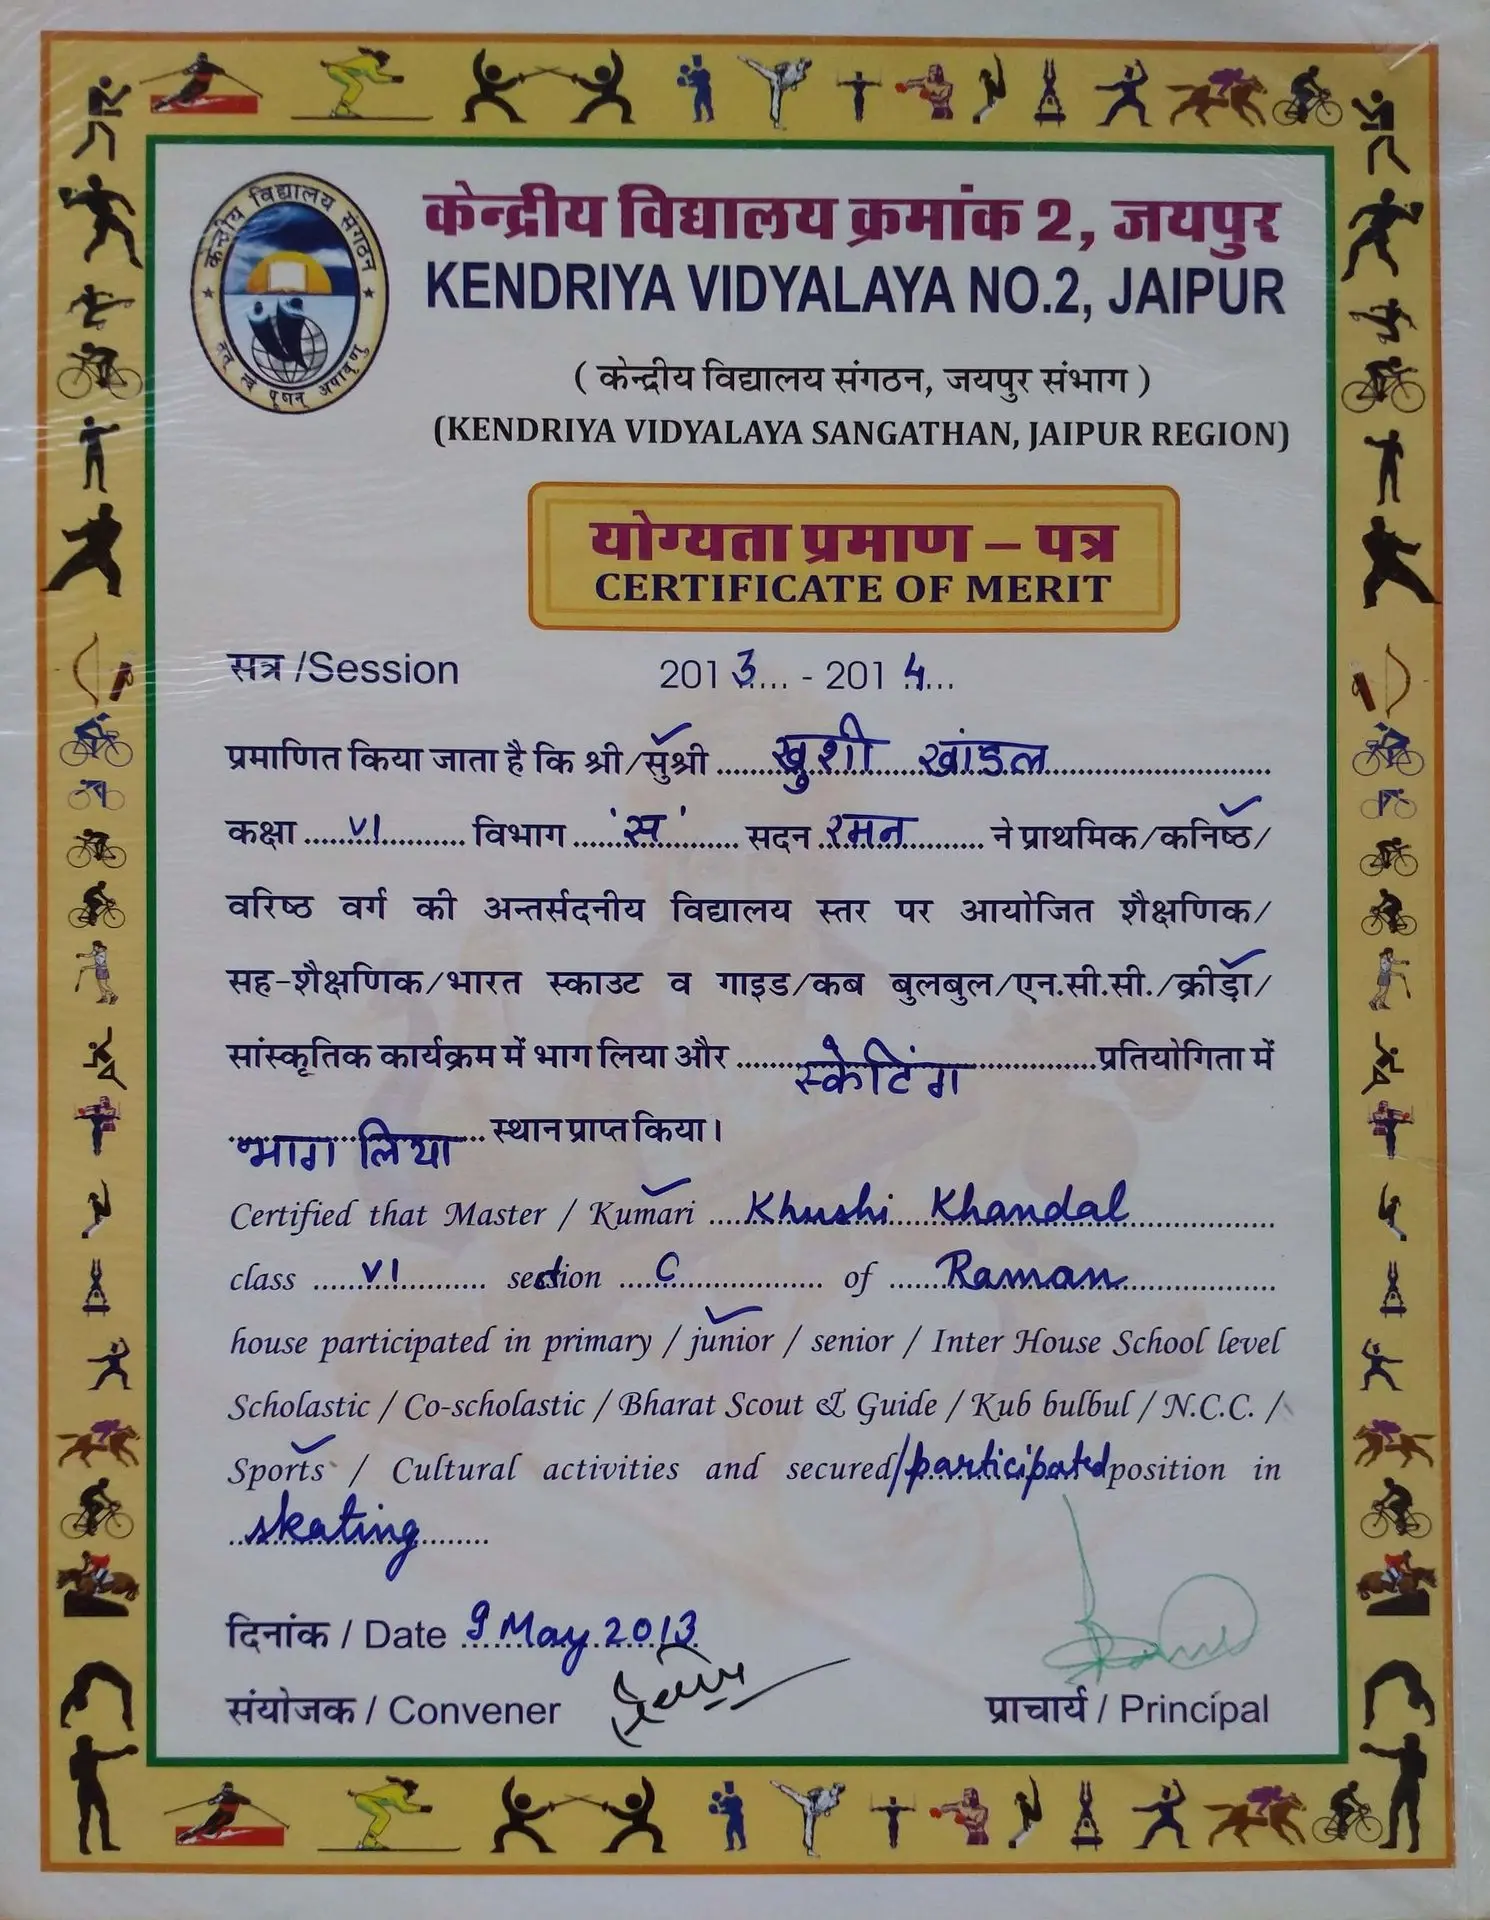 केन्द्रीय विद्यालय संगठन
तत् त्वं पूषन् अपावृणु
केन्द्रीय विद्यालय क्रमांक 2, जयपुर
KENDRIYA VIDYALAYA NO.2, JAIPUR
( केन्द्रीय विद्यालय संगठन, जयपुर संभाग )
(KENDRIYA VIDYALAYA SANGATHAN, JAIPUR REGION)
योग्यता प्रमाण – पत्र
CERTIFICATE OF MERIT
सत्र /Session 2013.... - 2014....
प्रमाणित किया जाता है कि श्री/सुश्री खुशी खांडल
कक्षा VI विभाग 'स' सदन रमन ने प्राथमिक/कनिष्ठ/
वरिष्ठ वर्ग की अन्तर्सदनीय विद्यालय स्तर पर आयोजित शैक्षणिक/
सह-शैक्षणिक/भारत स्काउट व गाइड/कब बुलबुल/एन.सी.सी./क्रीड़ा/
सांस्कृतिक कार्यक्रम में भाग लिया और स्केटिंग प्रतियोगिता में
भाग लिया स्थान प्राप्त किया।
Certified that Master / Kumari Khushi Khandal
class VI section C of Raman
house participated in primary / junior / senior / Inter House School level
Scholastic / Co-scholastic / Bharat Scout & Guide / Kub bulbul / N.C.C. /
Sports / Cultural activities and secured/participated position in
skating
दिनांक / Date 9 May 2013
संयोजक / Convener
प्राचार्य / Principal